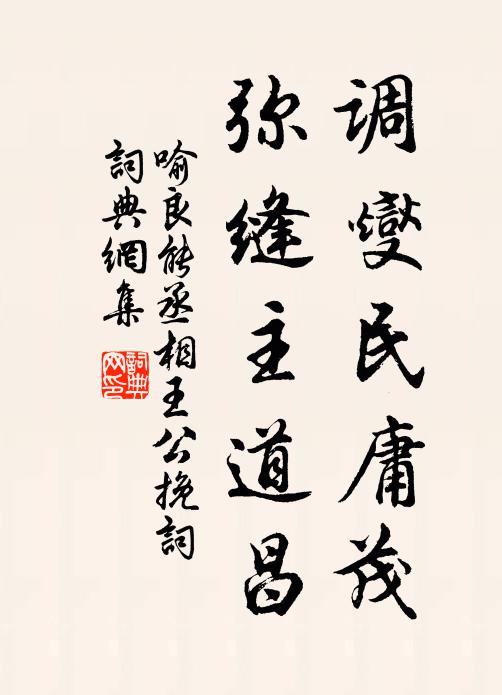 调燮民庸茂
弥缝主道昌
喻良能丞相王公挽詞
詞典網集
詞典网印